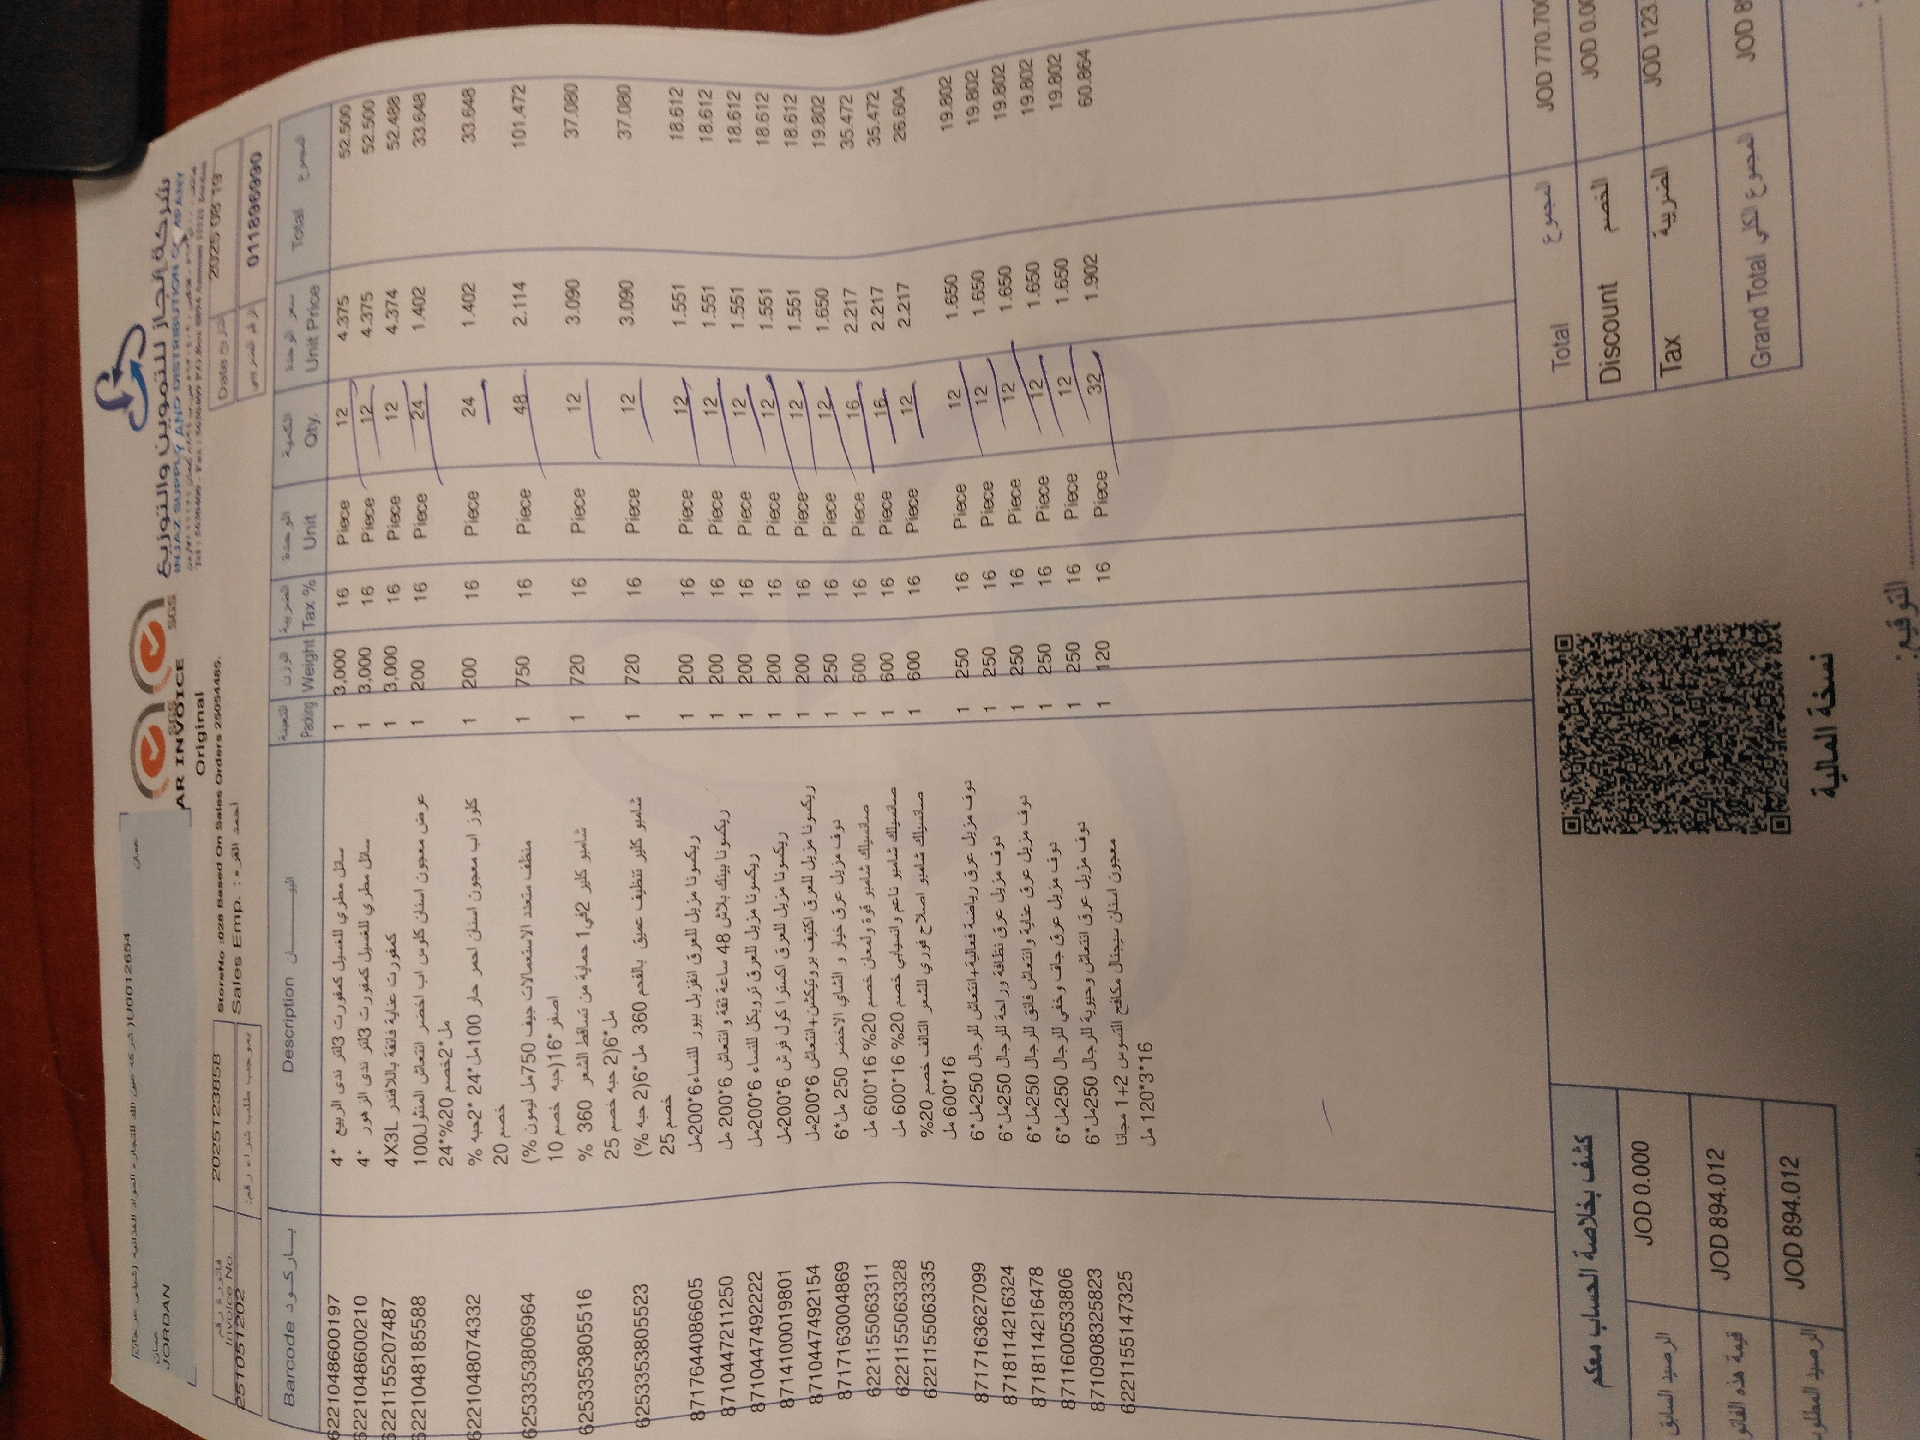 شركة إنجاز للتموين والتوزيع
INJAZ SUPPLY AND DISTRIBUTION COMPANY
SGS SGS
AR INVOICE
Original
عمان
JORDAN
StoreNo :028 Based On Sales Orders 25054485.
Sales Emp. :
فاتورة رقم
Invoice No.
251051202
202512385B
بموجب طلب شراء رقم:
Date تاريخ 2025 08 19
الرقم الضريبي 011896990
باركود Barcode | البيـــــان Description | التعبئة Packing | الوزن Weight | الضريبة Tax % | الوحدة Unit | الكمية Qty. | سعر الوحدة Unit Price | المجموع Total
6221048600197 سائل معطر للغسيل كمفورت 3لتر ندى الربيع *4 1 3,000 16 Piece 12 4.375 52.500
6221048600210 سائل معطر للغسيل كمفورت 3لتر ندى الزهور *4 1 3,000 16 Piece 12 4.375 52.500
6221155207487 كمفورت عناية فائقة باللافندر 4X3L 1 3,000 16 Piece 12 4.374 52.488
6221048185588 عرض معجون اسنان كلوس اب اخضر انتعاش المنثول100 1 200 16 Piece 24 1.402 33.648
مل*2خصم 20%*24
6221048074332 كلوز اب معجون اسنان احمر حار 100مل*24 *2حبه % 1 200 16 Piece 24 1.402 33.648
خصم 20
6253353806964 منظف متعدد الاستعمالات جيف 750مل ليمون %) 1 750 16 Piece 48 2.114 101.472
اصفر *16(حبه خصم 10
6253353805516 شامبو كلير 2في1 حماية من تساقط الشعر 360 % 1 720 16 Piece 12 3.090 37.080
مل*6(2 حبه خصم 25
6253353805523 شامبو كلير تنظيف عميق بالفحم 360 مل *6(2 حبه %) 1 720 16 Piece 12 3.090 37.080
خصم 25
8717644086605 ريكسونا مزيل للعرق انفزبل بيور للنساء6*200مل 1 200 16 Piece 12 1.551 18.612
8710447211250 ريكسونا بينك بلاش 48 ساعة ثقة و انتعاش 6*200 مل 1 200 16 Piece 12 1.551 18.612
8710447492222 ريكسونا مزيل للعرق تروبيكل للنساء 6*200مل 1 200 16 Piece 12 1.551 18.612
8714100019801 ريكسونا مزيل للعرق اكسترا كول فرش 6*200مل 1 200 16 Piece 12 1.551 18.612
8710447492154 ريكسونا مزيل للعرق اكتيف بروتيكشن+انتعاش 6*200مل 1 200 16 Piece 12 1.551 18.612
8717163004869 دوف مزيل عرق خيار و الشاي الاخضر 250 مل*6 1 250 16 Piece 12 1.650 19.802
6221155063311 صانسيلك شامبو قوة ولمعان خصم 20% 16*600 مل 1 600 16 Piece 16 2.217 35.472
6221155063328 صانسيلك شامبو ناعم وانسيابي خصم 20% 16*600 مل 1 600 16 Piece 16 2.217 35.472
6221155063335 صانسيلك شامبو اصلاح فوري للشعر التالف خصم 20% 1 600 16 Piece 12 2.217 26.604
16*600 مل
8717163627099 دوف مزيل عرق رياضة فعالية+انتعاش للرجال 250مل*6 1 250 16 Piece 12 1.650 19.802
8718114216324 دوف مزيل عرق نظافة وراحة للرجال 250مل*6 1 250 16 Piece 12 1.650 19.802
8718114216478 دوف مزيل عرق عناية وانتعاش فائق للرجال 250مل*6 1 250 16 Piece 12 1.650 19.802
8711600533806 دوف مزيل عرق جاف وخفي للرجال 250مل*6 1 250 16 Piece 12 1.650 19.802
8710908325823 دوف مزيل عرق انتعاش وحيوية للرجال 250مل*6 1 250 16 Piece 12 1.650 19.802
6221155147325 معجون اسنان سيجنال مكافح التسوس 2+1 مجانا 1 120 16 Piece 32 1.902 60.864
16*3*120 مل
Total المجموع JOD 770.70
Discount الخصم JOD 0.00
Tax الضريبة JOD 123.
Grand Total المجموع الكلي JOD 8
كشف بخلاصة الحساب معكم
الرصيد السابق JOD 0.000
قيمة هذه الفاتو JOD 894.012
الرصيد المطلوب JOD 894.012
نسخة المالية
التوقيع: